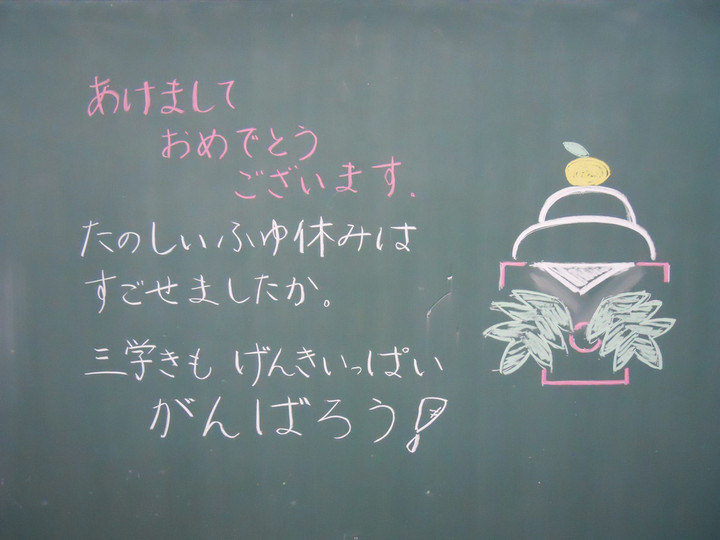 あけまして
おめでとう
ございます.
たのしいふゆ休みは
すごせましたか。
三学きも げんきいっぱい
がんばろう!